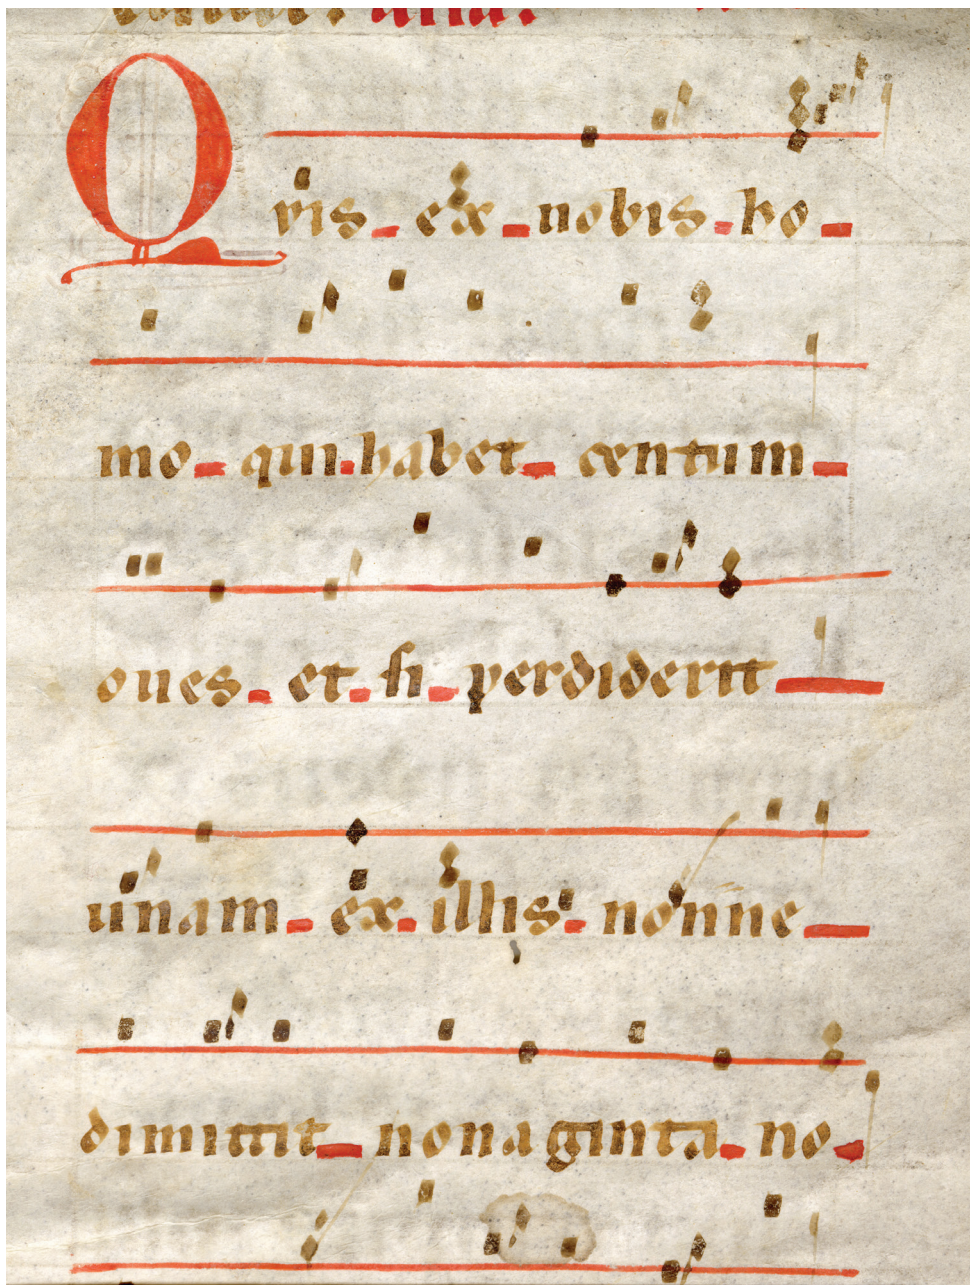 Quis ex nobis ho
mo qui habet centum
oues et si perdiderit
unam ex illis nonne
dimittit nonaginta no